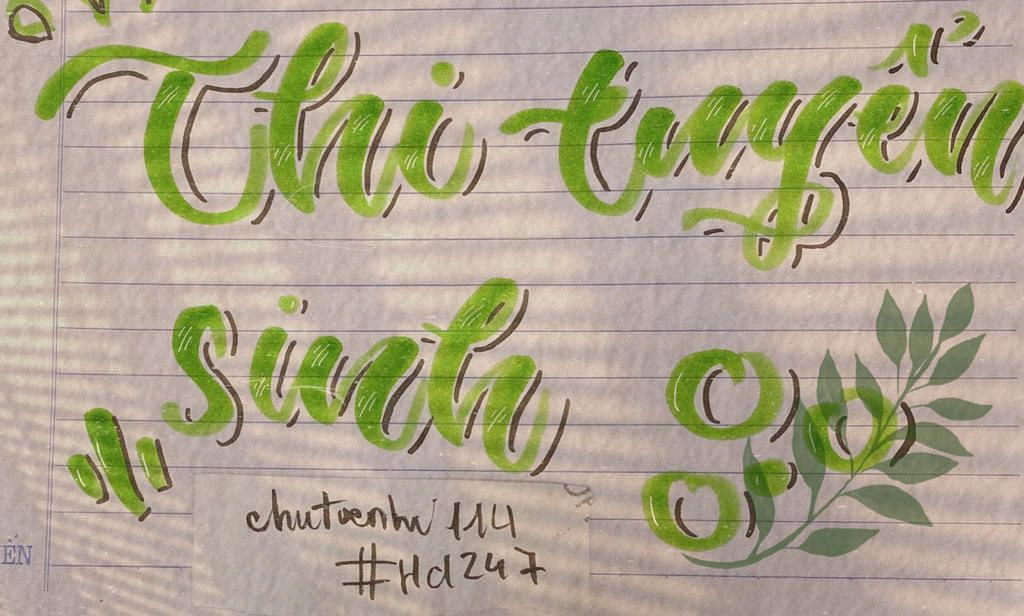 Thi tuyển
sinh
chutoenhi 114
#Hd247
ÊN